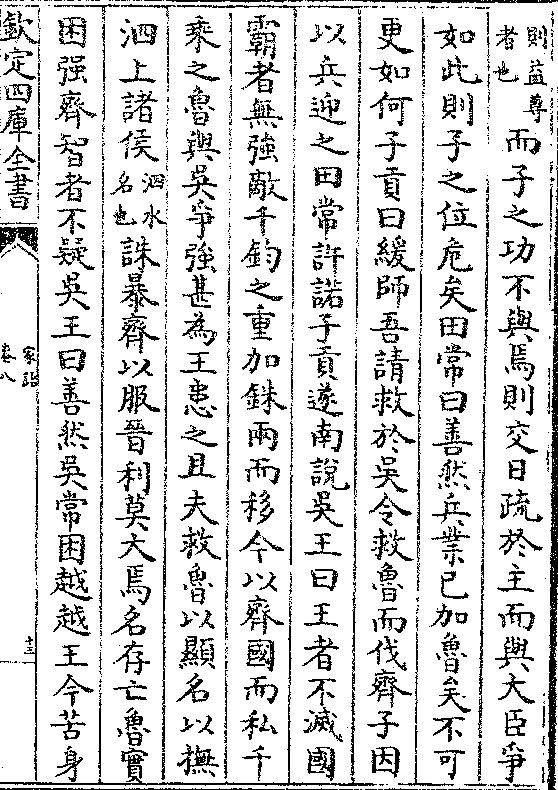 則益尊者也而子之功不與焉則交日疏於主而與大臣爭
如此則子之位危矣田常曰善然兵業已加魯矣不可
更如何子貢曰緩師吾請救於吳令救魯而伐齊子因
以兵迎之田常許諾子貢遂南說吳王曰王者不滅國
霸者無強敵千鈞之重加銖兩而移今以齊國而私千
乘之魯與吳爭強甚為王患之且夫救魯以顯名以撫
泗上諸侯泗水名也誅暴齊以服晉利莫大焉名存亡魯實
困强齊智者不疑吳王曰善然吳常困越越王今苦身
欽定四庫全書
家語
卷八
十三